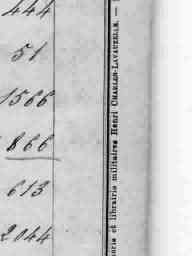 444
51
1566
866
613
2044
rie et librairie militaires Henri CHARLES-LAVAUZELLE. —